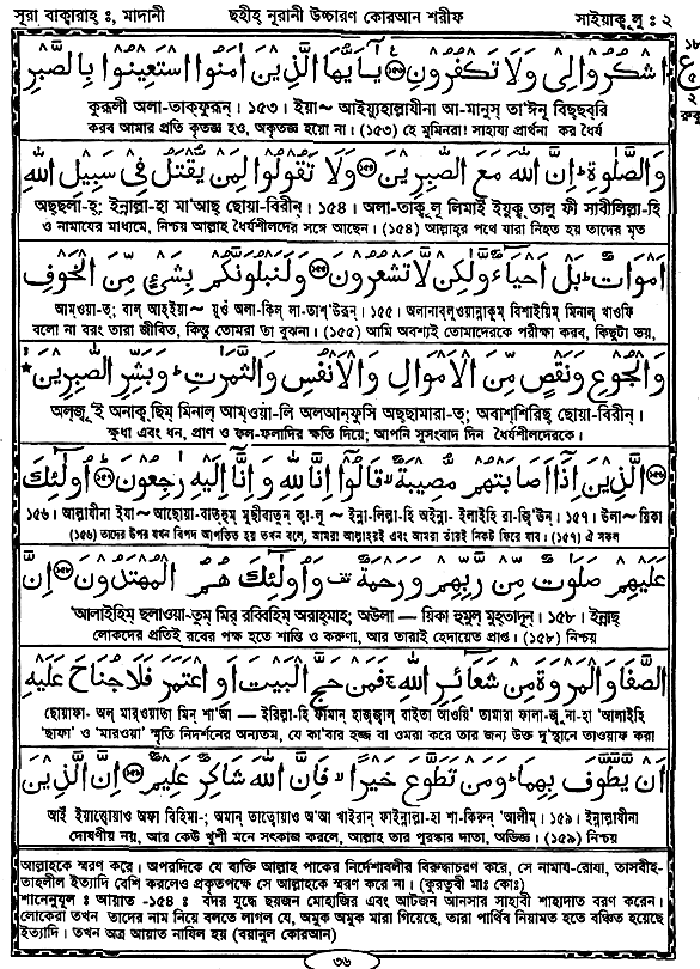 সূরা বাক্বারাহ্ ঃ, মাদানী ছহীহ্ নূরানী উচ্চারণ কোরআন শরীফ সাইয়াকূ লূ ঃ ২
اشْكُرُوا لِي وَلَا تَكْفُرُونِ ۝ يَا أَيُّهَا الَّذِينَ آمَنُوا اسْتَعِينُوا بِالصَّبْرِ
কুরূলী অলা-তাক্ফুরূন্। ১৫৩। ইয়া~ আইয়্যুহাল্লাযীনা আ-মানুস্ তা'ঈনূ বিছ্ছব্রি
করব আমার প্রতি কৃতজ্ঞ হও, অকৃতজ্ঞ হয়ো না। (১৫৩) হে মুমিনরা! সাহায্য প্রার্থনা কর ধৈর্য
وَالصَّلٰوةِ ۚ اِنَّ اللّٰهَ مَعَ الصّٰبِرِيْنَ ۝ وَلَا تَقُوْلُوْا لِمَنْ يُّقْتَلُ فِيْ سَبِيْلِ اللّٰهِ
অছ্ছলা-হ্; ইন্নাল্লা-হা মা'আছ্ ছোয়া-বিরীন্। ১৫৪। অলা-তাকূ লূ লিমাইঁ ইয়ুক্ব্ তালু ফী সাবীলিল্লা-হি
ও নামাযের মাধ্যমে, নিশ্চয় আল্লাহ ধৈর্যশীলদের সঙ্গে আছেন। (১৫৪) আল্লাহ্র পথে যারা নিহত হয় তাদের মৃত
اَمْوَاتٌ ۚ بَلْ اَحْيَآءٌ وَّلٰكِنْ لَّا تَشْعُرُوْنَ ۝ وَلَنَبْلُوَنَّكُمْ بِشَيْءٍ مِّنَ الْخَوْفِ
আম্ওয়া-ত্; বাল্ আহ্ইয়া~ য়ুওঁ অলা-কিল্ লা-তাশ্'উরূন্। ১৫৫। অলানাব্লুওয়ান্নাকুম্ বিশাইয়িম্ মিনাল্ খাওফি
বলো না বরং তারা জীবিত, কিন্তু তোমরা তা বুঝনা। (১৫৫) আমি অবশ্যই তোমাদেরকে পরীক্ষা করব, কিছুটা ভয়,
وَالْجُوْعِ وَنَقْصٍ مِّنَ الْاَمْوَالِ وَالْاَنْفُسِ وَالثَّمَرٰتِ ۚ وَبَشِّرِ الصّٰبِرِيْنَ
অল্জূ'ই অনাক্ব্ ছিম্ মিনাল্ আম্ওয়া-লি অলআন্ফুসি অছ্ছামারা-ত্; অবাশ্শিরিছ্ ছোয়া-বিরীন্।
ক্ষুধা এবং ধন, প্রাণ ও ফল-ফলাদির ক্ষতি দিয়ে; আপনি সুসংবাদ দিন ধৈর্যশীলদেরকে।
الَّذِيْنَ اِذَآ اَصَابَتْهُمْ مُّصِيْبَةٌ ۙ قَالُوْٓا اِنَّا لِلّٰهِ وَ اِنَّآ اِلَيْهِ رٰجِعُوْنَ ۝ اُولٰٓئِكَ
১৫৬। আল্লাযীনা ইযা~ আছোয়া-বাত্হুম্ মুছীবাতুন্ ক্বা-লূ~ ইন্না-লিল্লা-হি অইন্না~ ইলাইহি রা-জ্বি'উন্। ১৫৭। উলা~ য়িকা
(১৫৬) তাদের উপর যখন বিপদ আপতিত হয় তখন বলে, আমরা আল্লাহ্রই এবং আমরা তাঁরই নিকট ফিরে যাব। (১৫৭) ঐ সকল
عَلَيْهِمْ صَلَوٰتٌ مِّنْ رَّبِّهِمْ وَرَحْمَةٌ ۟ وَاُولٰٓئِكَ هُمُ الْمُهْتَدُوْنَ ۝ اِنَّ
'আলাইহিম্ ছলাওয়া-তুম্ মির্ রব্বিহিম্ অরাহ্মাহ্; অউলা — য়িকা হুমুল্ মুহ্তাদূন্। ১৫৮। ইন্নাছ্
লোকদের প্রতিই রবের পক্ষ হতে শান্তি ও করুণা, আর তারাই হেদায়েত প্রাপ্ত। (১৫৮) নিশ্চয়
الصَّفَا وَالْمَرْوَةَ مِنْ شَعَآئِرِ اللّٰهِ ۚ فَمَنْ حَجَّ الْبَيْتَ اَوِ اعْتَمَرَ فَلَا جُنَاحَ عَلَيْهِ
ছোয়াফা- অল্ মার্ওয়াতা মিন্ শা'আ — ইরিল্লা-হি ফামান্ হাজ্জ্বাল্ বাইতা আওয়ি' তামারা ফালা-জু্ না-হা 'আলাইহি
'ছাফা' ও 'মারওয়া' স্মৃতি নিদর্শনের অন্যতম, যে কা'বার হজ্জ বা ওমরা করে তার জন্য উক্ত দু'স্থানে তাওয়াফ করা
اَنْ يَّطَّوَّفَ بِهِمَا ۚ وَمَنْ تَطَوَّعَ خَيْرًا ۙ فَاِنَّ اللّٰهَ شَاكِرٌ عَلِيْمٌ ۝ اِنَّ الَّذِيْنَ
আইঁ ইয়াত্ত্বোয়াও অফা বিহিমা-; অমান্ তাত্বোয়াও অ'আ খাইরান্ ফাইন্নাল্লা-হা শা-কিরুন্ 'আলীম্। ১৫৯। ইন্নাল্লাযীনা
দোষণীয় নয়, আর কেউ খুশী মনে সৎকাজ করলে, আল্লাহ তার পুরস্কার দাতা, অভিজ্ঞ। (১৫৯) নিশ্চয়
আল্লাহকে স্মরণ করে। অপরদিকে যে ব্যক্তি আল্লাহ পাকের নির্দেশাবলীর বিরুদ্ধাচরণ করে, সে নামায-রোযা, তাসবীহ-
তাহলীল ইত্যাদি বেশি করলেও প্রকৃতপক্ষে সে আল্লাহকে স্মরণ করে না। (কুরতুবী মাঃ কোঃ)
শানেনুযূল ঃ আয়াত -১৫৪ ঃ বদর যুদ্ধে ছয়জন মোহাজির এবং আটজন আনসার সাহাবী শাহাদাত বরণ করেন।
লোকেরা তখন তাদের নাম নিয়ে বলতে লাগল যে, অমুক অমুক মারা গিয়েছে, তারা পার্থিব নিয়ামত হতে বঞ্চিত হয়েছে
ইত্যাদি। তখন অত্র আয়াত নাযিল হয় (বয়ানুল কোরআন)
৩৬